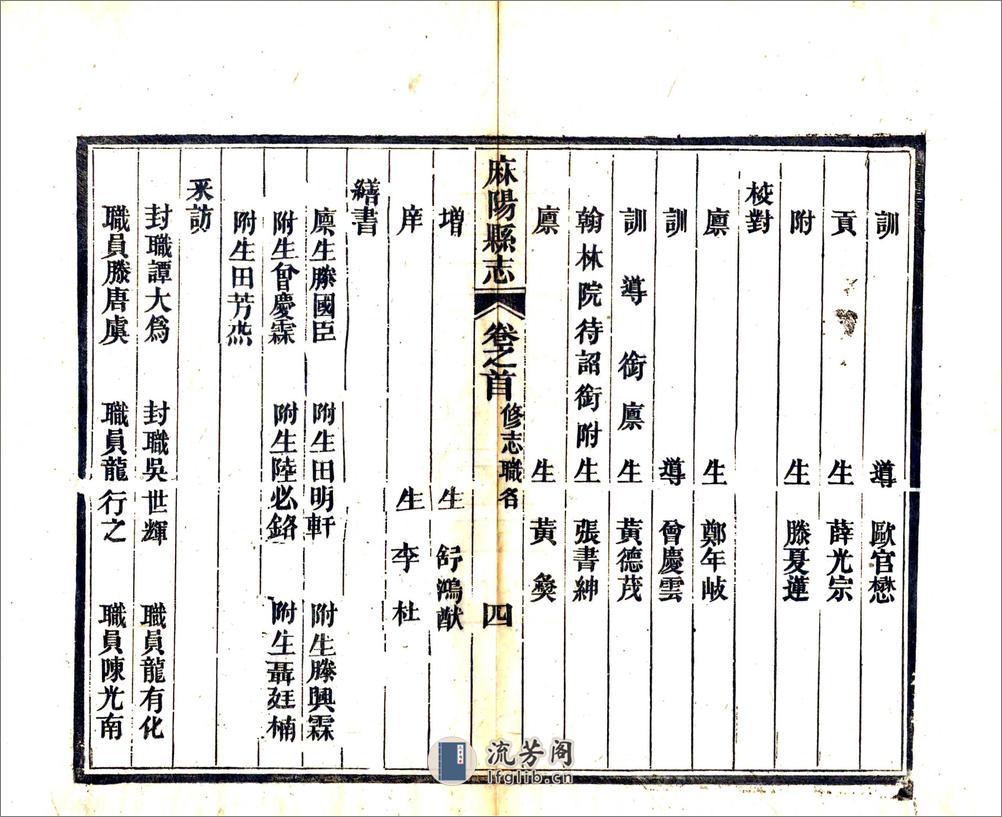 訓導歐官懋
貢生薛光宗
附生滕夏蓮
校對
廪生鄭年岐
訓導曾慶雲
訓導銜廪生黃德茂
翰林院待詔銜附生張書紳
廪生黃燊
麻陽縣志 卷之首 修志職名 四
增生舒鴻猷
庠生李杜
繕書
廪生滕國臣 附生田明軒 附生滕興霖
附生曾慶霖 附生陸必鉻 附生聶廷楠
附生田芳烋
采訪
封職譚大為 封職吳世輝 職員龍有化
職員滕唐虞 職員龍行之 職員陳光南
流芳阁
lfglib.cn